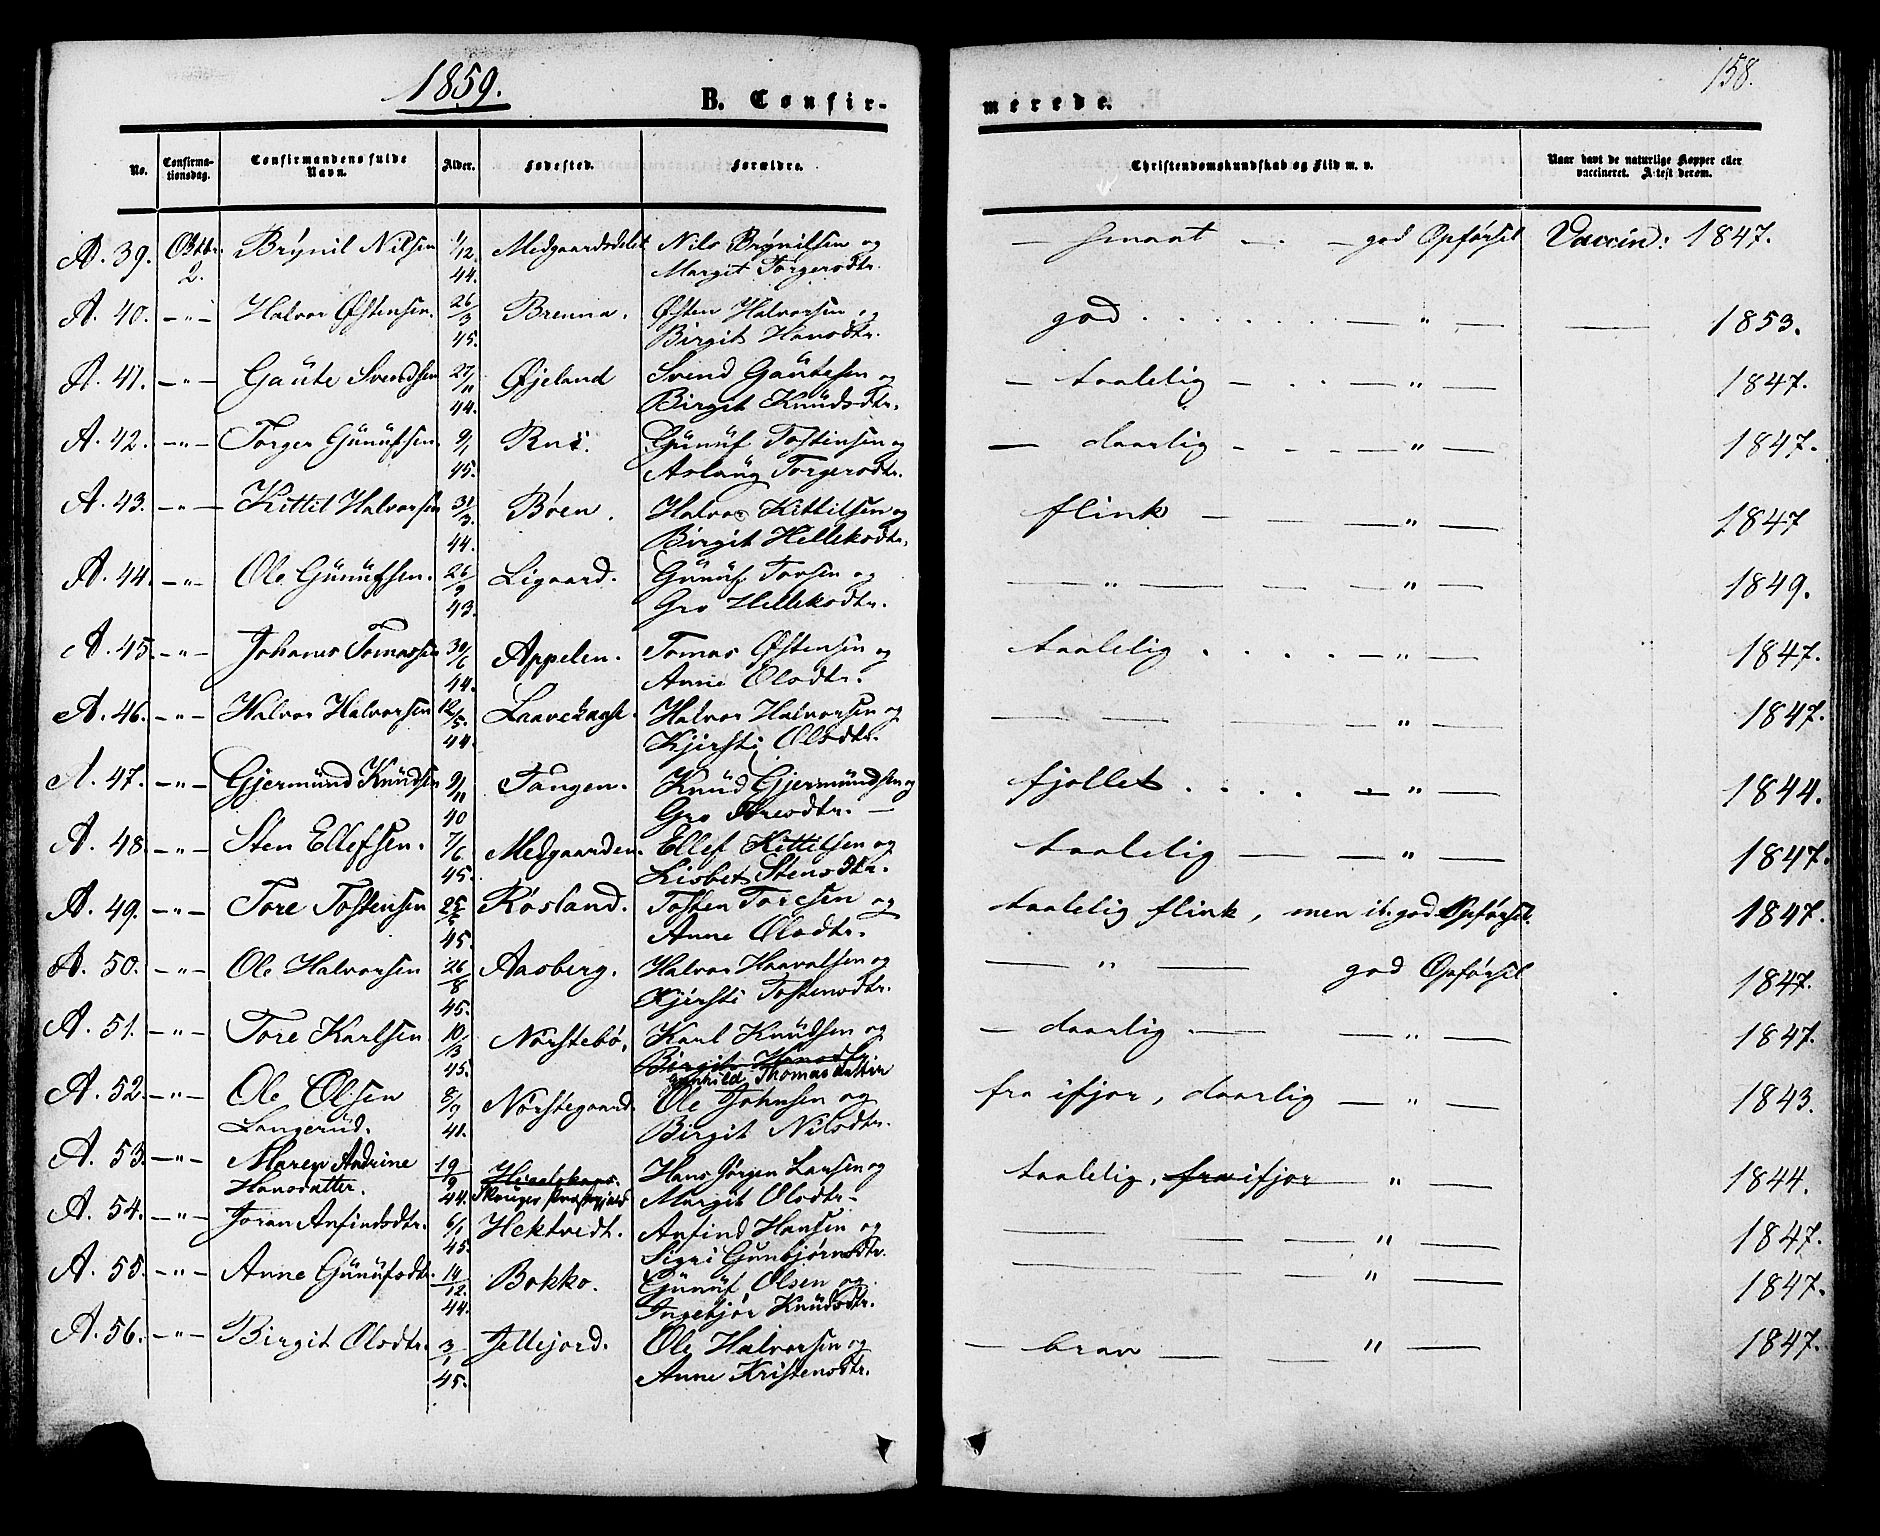 1859.
B. Confir-
merede.
158.
No.
Confirma-
tionsdag.
Confirmandens fulde
Navn.
Alder.
Fødested.
Forældre.
Christendomskundskab og Flid m. v.
Naar havt de naturlige Kopper eller
vaccineret. Attest derom.
A. 39. Oktbr. Brynil Nilsen 1/12 Medgaardsdelet Nils Brynilsen og — smaat — . — god Opførsel Vaccin: 1847.
2. 44. Margit Torgersdtr.
A. 40. —"— Halvor Østensen. 26/3 Brenna. Østen Halvorsen og god . . . . . . — " — —— 1853.
45. Birgit Hansdtr.
A. 41. —"— Gaute Svendsen 27/11 Øjeland Svend Gautesen og — taalelig — . . — " — 1847.
44. Birgit Knudsdtr.
A. 42. —"— Torger Gunufsen. 9/1 Gunuf Tostensen og — daarlig — . . — " — 1847.
45. Aslaug Torgersdtr.
A. 43. —"— Kittil Halvorsen 31/3. Bøen. Halvor Kittilsen og flink — — — " — 1847
44. Birgit Helleksdtr.
A. 44. —"— Ole Gunufsen. 26/9 Ligaard. Gunuf Torsen og — " — — — " — 1849.
43. Gro Helleksdtr.
A. 45. —"— Johanes Tomassen 30/6 Appelen. Tomas Østensen og taalelig . . . . — " — 1847.
44. Anne Olsdtr.
A. 46. —"— Halvor Halvorsen 12/5. Halvor Halvorsen og — — — — " — 1847.
44. Kjersti Olsdtr.
A. 47. —"— Gjermund Knudsen 9/11 Tangen. Knud Gjermundsen og fjollet . . . . — " — 1844.
40 Gro Toresdtr. —
A. 48. —"— Sten Ellefsen. 7/6 Medgaarden. Ellef Kittilsen og taalelig — — " — 1847.
45. Lisbet Stensdtr.
A. 49. —"— Tore Tostensen 25/5 Røsland. Tosten Toresen og taalelig flink, men god Opførsel. 1847.
45. Anne Olsdtr.
A. 50. —"— Ole Halvorsen 26/8 Aasberg. Halvor Haavalsen og — " — god Opførsel 1847.
45. Kjersti Tostensdtr.
A. 51. —"— Tore Karlsen 10/3 Norstebø. Karl Knudsen og — daarlig — — " — 1847.
45. Birgit Hansdtr
Gunhild Thomasdatter
A. 52. —"— Ole Olsen 8/9 Norstegaard. Ole Johnsen og fra ifjor, daarlig — " — 1843.
Langerud. 41. Birgit Nilsdtr.
A. 53. —"— Maren Andrine 19/9 Hans Jørgen Larsen og taalelig, fra ifjor — " — 1844.
Hansdatter. 44. Margit Olsdtr —
A. 54. —"— Joran Anfindsdtr. 6/1 Hektvedt. Anfind Hansen og — — — " — 1847.
45. Sigri Gunbjørnsdtr.
A. 55. —"— Anne Gunufsdtr. 14/12. Bokko. Gunuf Olsen og — — — " — 1847.
44. Ingebjør Knudsdtr.
A. 56. —"— Birgit Olsdtr. 3/1 Jellejord. Ole Halvorsen og — brav — — " — 1847.
45. Anne Kristensdtr.